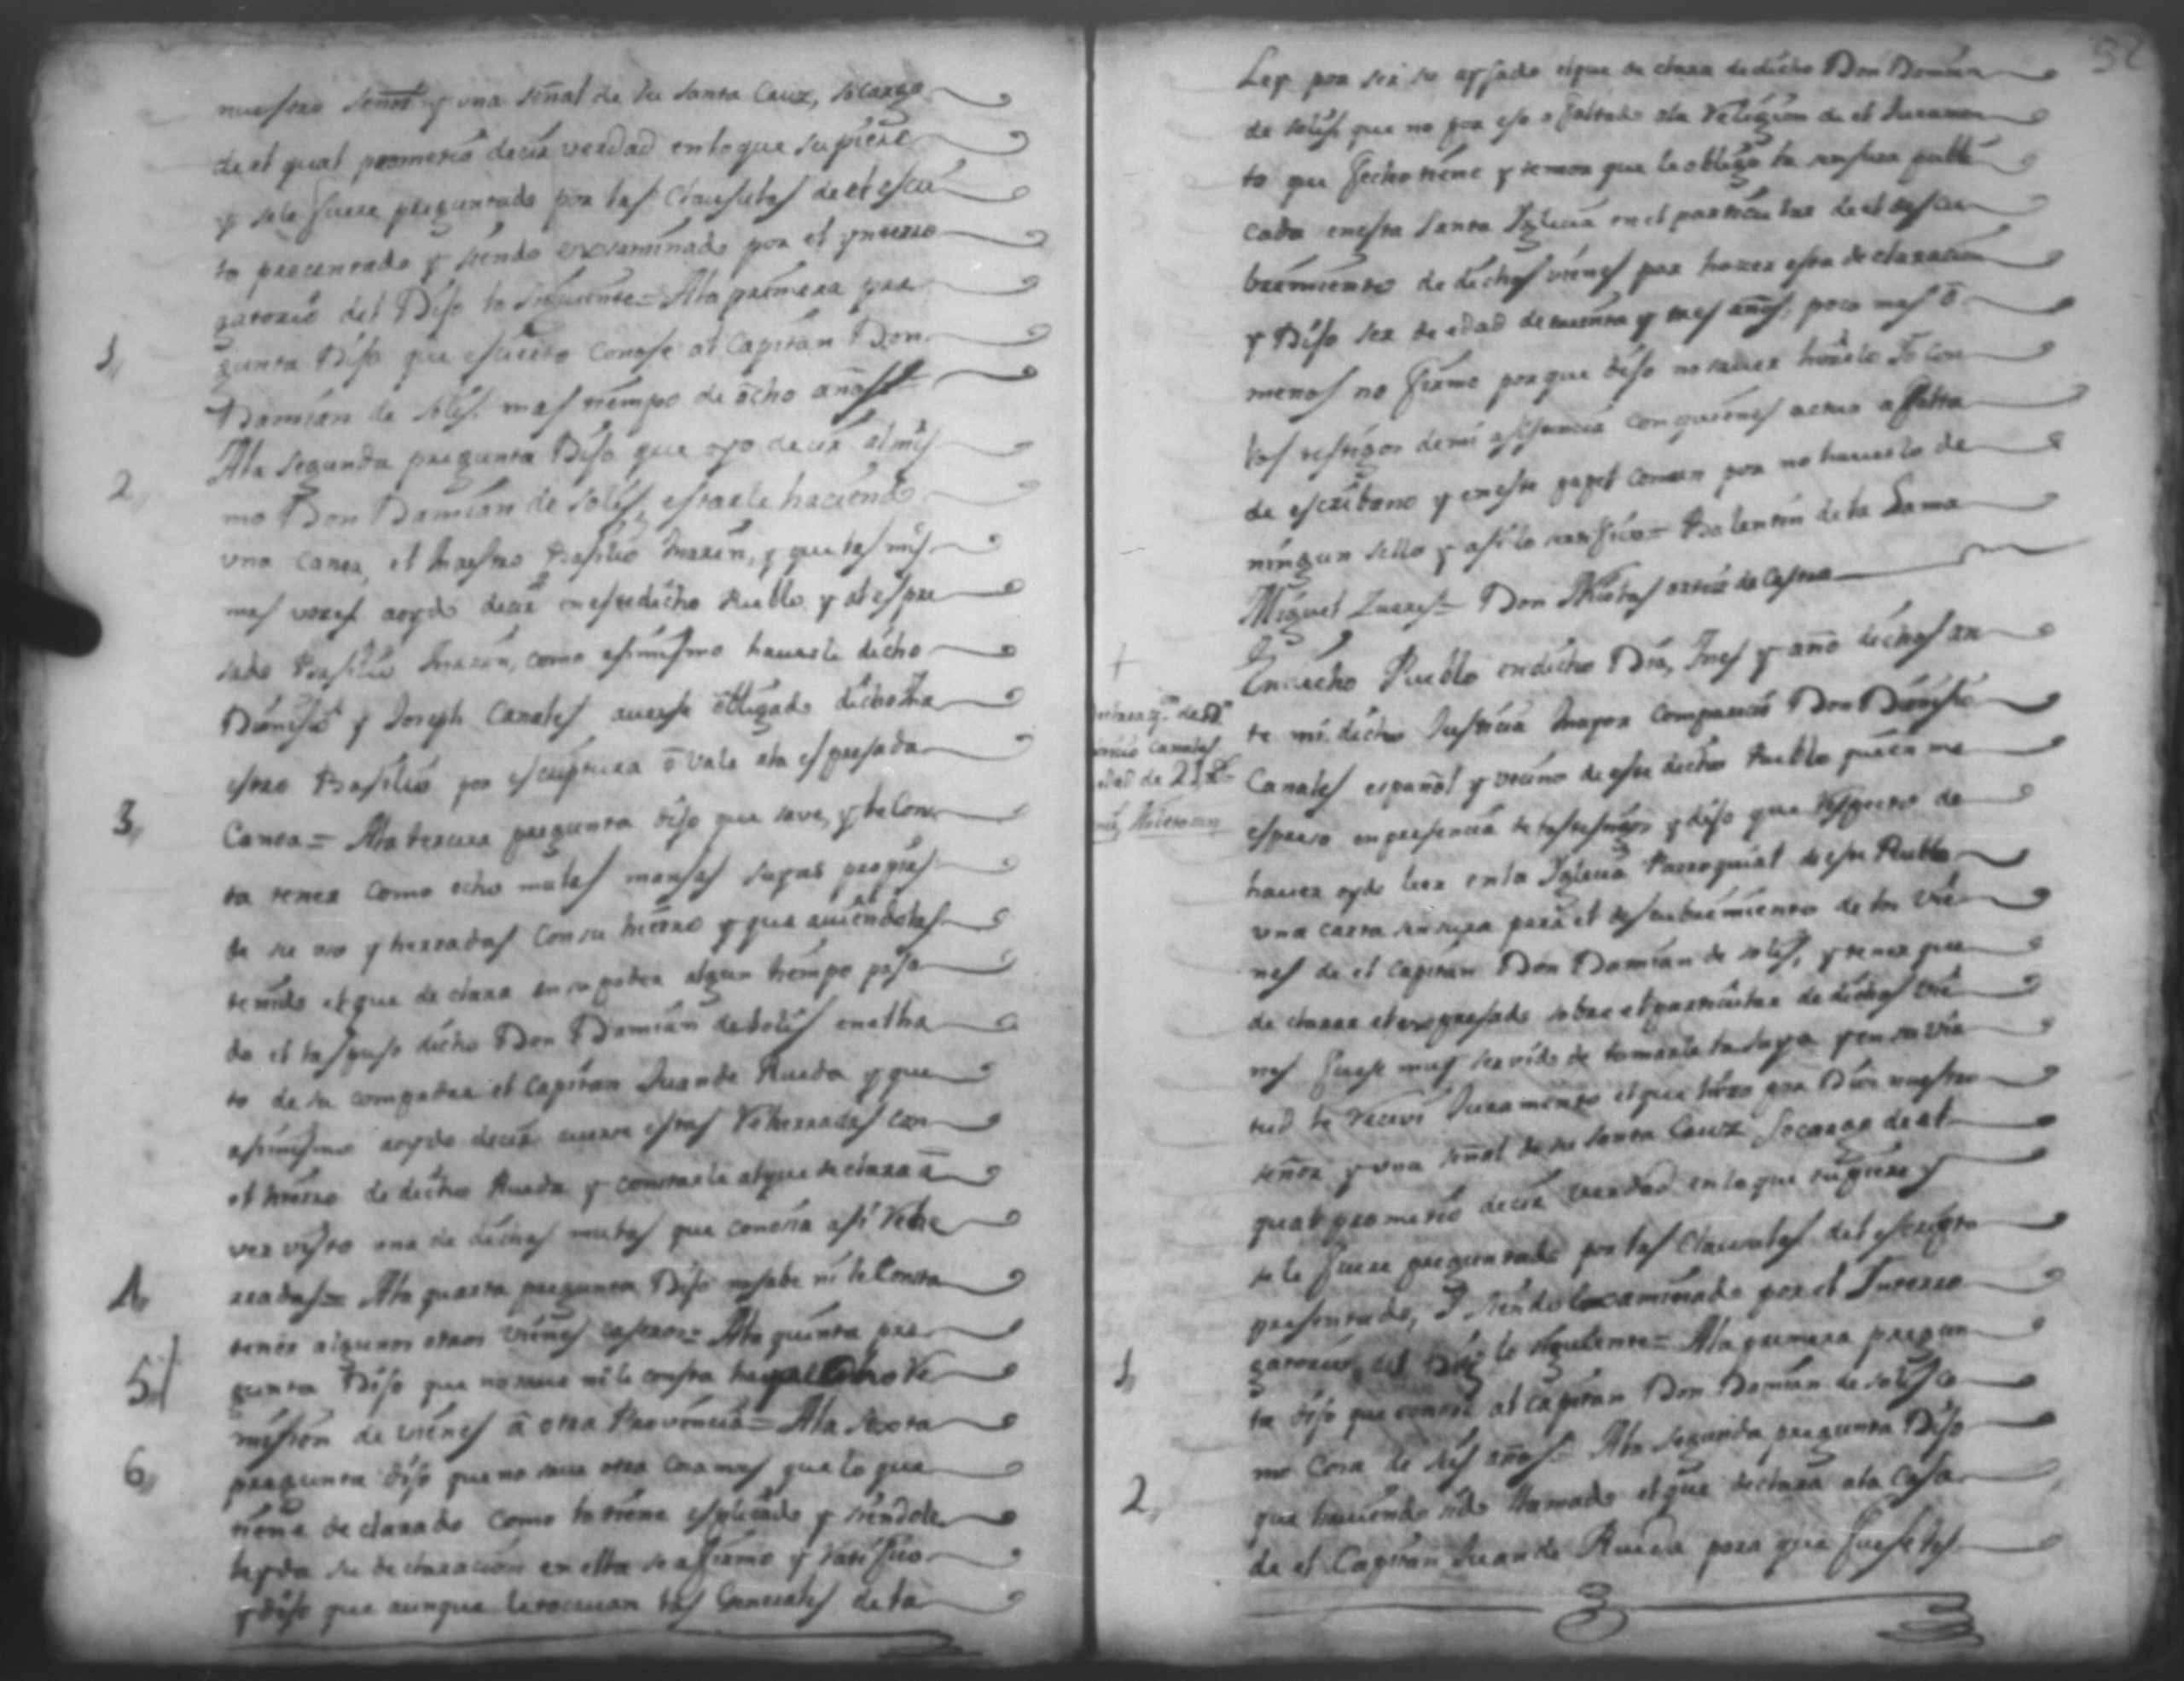 nuestro señor y una señal de su santa Cruz, so cargo
de el qual prometio decir verdad en lo que supiere
y se le fuere preguntado por las Clausulas de el escri
to precentado y siendo exsaminado por el ynterro
gatorio del Dijo lo siguiente = Ala primera pre
1,, gunta Dijo que es cierto conose al Capitan Don
Damian de Solis mas tiempo de ocho años =
2,, Ala segunda pregunta Dijo que oyo decir al mis
mo Don Damian de Solis, estarle haciendo
una canoa, el Maestro Basilio Marin, y que las mis
mas voces a oydo decir en este dicho Pueblo y al espre
sado Basilio Marin, como asimismo haverle dicho
Dionisio y Joseph Canales averse obligado dicho Ma
estro Basilio por escriptura o vale ala espresada
3,, Canoa = Ala tercera pregunta dijo que save, y le Cons
ta tener como ocho mulas mansas suyas propias
de su uso y herradas con su hierro y que aviendolas
tenido el que declara en su poder algun tiempo pasa
do el las puso dicho Don Damian de Solis en el ha
to de su compadre el Capitan Juan de Rueda y que
asimismo a oydo decir averse estas Reherradas con
el hierro de dicho Rueda y constarle al que declara a
ver visto una de dichas mulas que conosia asi Rehe
4,, rradas = Ala quarta pregunta Dijo no sabe ni le Consta
tener algunos otros vienes = Ala quinta pre
5,, gunta Dijo que no save ni le consta haya Re
mision de vienes a otra Provincia = Ala sexta
6,, pregunta dijo que no save otra Cosa mas que lo que
tiene declarado como lo tiene esplicado y siendole
leyda su declaracion en ella se afirmo y ratifico
y dijo que aunque le tocavan las Generales de la
Ley por ser su el que declara de dicho Don Damian
de Solis que no por eso a faltado ala Religion de el Juramen
to que fecho tiene y temor que le obligo la sensura publi
cada en esta Santa Yglecia en el particular de el descu
brimiento de dichos vienes por hazer esta declaracion
y Dijo ser de edad de treinta y tres años, poco mas o
menos no firmo porque dijo no saver hizelo Yo Con
los testigos de mi asistencia con quienes actuo a falta
de escribano y en este papel comun por no haverlo de
ningun sello y asi lo sertifico = Balentin de la Lama
Miguel Juares = Don Nicolas ortis de Castro
En dicho Pueblo en dicho Dia, Mes y año dichos an
te mi dicho Justicia Mayor comparecio Don Dionisio
Canales español y vecino de este dicho Pueblo quien me
espreso en presencia de los testigos y dijo que Respecto de
haver oydo leer en la Yglecia Parroquial de este Pueblo
una carta sensura para el descubrimiento de los vie
nes de el Capitan Don Damian de Solis, y tener que
declarar el espresado sobre el particular de dichos vie
nes fuese muy servido de tomarle la suya y en su vir
tud le recevi Juramento el que hizo por Dios nuestro
señor y una señal de su Santa Cruz socargo de el
qual prometio decir verdad en lo que supiere y
se le fuere preguntado por las Clausulas del escripto
presentado, Y siendo exsaminado por el Interro
1,, gatorio, del Dijo lo siguiente = Ala primera pregun
ta dijo que conose al capitan Don Damian de Solis co
mo Cosa de seis años = Ala segunda pregunta Dijo
2,, que haviendo sido llamado el que declara ala Casa
de el Capitan Juan de Rueda para que fuese los